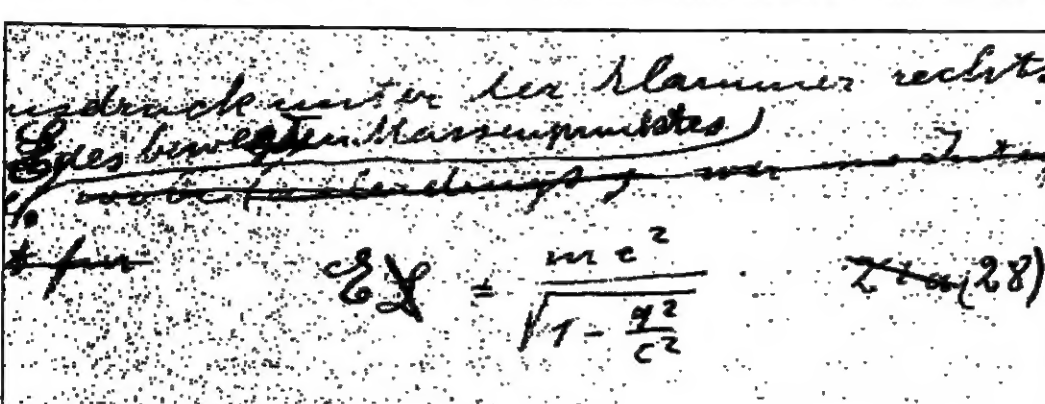 usdruck unter der Klammer rechts
E des bewegten Massenpunktes)
t für
E L = \frac{mc^2}{\sqrt{1 - \frac{q^2}{c^2}}} (28)